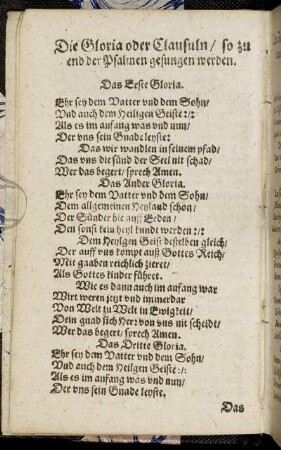 Die Gloria oder Clausuln/ so zu
end der Psalmen gesungen werden.
Das Erste Gloria.
Ehr sey dem Vatter vnd dem Sohn/
Vnd auch dem Heiligen Geiste:/:
Als es im anfang was vnd nun/
Der vns sein Gnade leyste:
Das wir wandlen in seinem pfad/
Das vns die sünd der Seel nit schad/
Wer das begert/ sprech Amen.
Das Ander Gloria.
Ehr sey dem Vatter vnd dem Sohn/
Dem allgemeinen Heyland schon/
Der Sünder hie auff Erden/
Den sonst kein heyl kundt werden:/:
Dem Heylgen Geist desselben gleich/
Der auff vns kompt auß Gottes Reich/
Mit gaaben reichlich zieret/
Als Gottes kinder führet.
Wie es dann auch im anfang war
Wirt weren jetzt vnd immerdar
Von Welt zu Welt in Ewigkeit/
Dein gnad sich Herr von vns nit scheidt/
Wer das begert/ sprech Amen.
Das Dritte Gloria.
Ehr sey dem Vatter vnd dem Sohn/
Vnd auch dem Heiligen Geiste:/:
Als es im anfang was vnd nun/
Der vns sein Gnade leyste,
Das